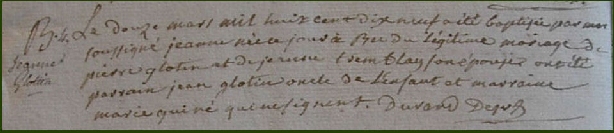 B. 4. Le douze mars mil huit cent dix neuf a été baptisée par moi
Jeanne soussigné jeanne née ce jour à Bee du légitime mariage de
Glotin pierre glotin et de jeanne tremblay son épouse ont été
parrain jean glotin oncle de l'enfant et marraine
marie qui ne signent. Durand